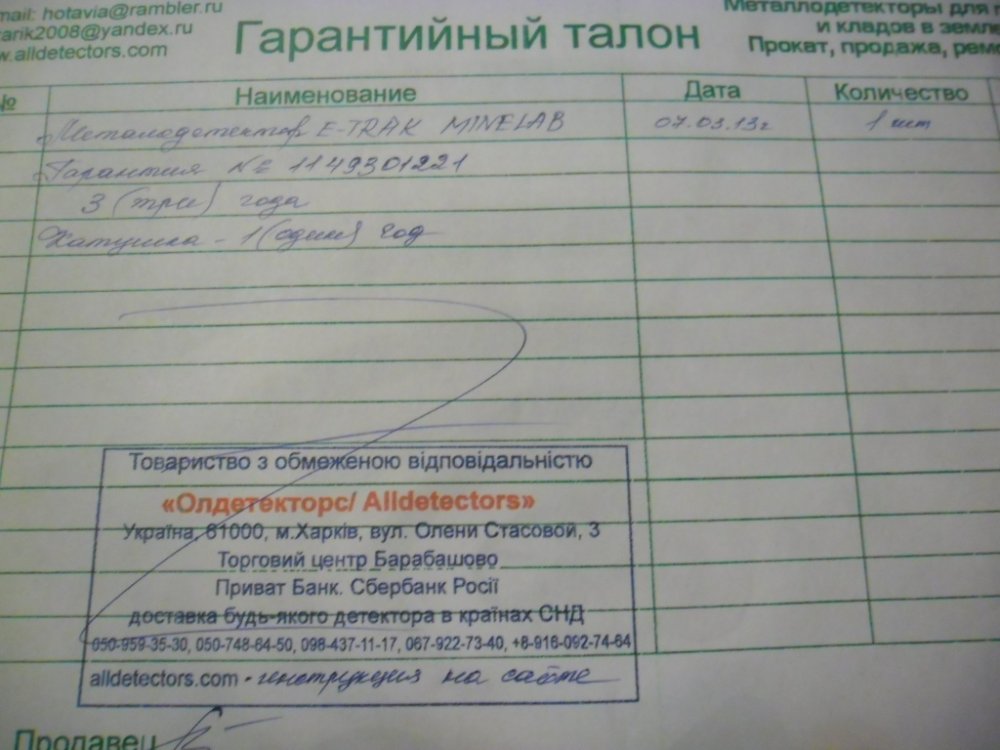 mail: hotavia@rambler.ru
arik2008@yandex.ru
w.alldetectors.com
Гарантийный талон
Металлодетекторы для п
и кладов в земле
Прокат, продажа, рем
№ Наименование Дата Количество
Металодетектор E-TRAK MINELAB 07.03.13г 1 шт
Гарантия № 1149301221
3 (три) года
Катушка - 1 (один) год
Товариство з обмеженою відповідальністю
«Олдетекторс/ Alldetectors»
Україна, 61000, м.Харків, вул. Олени Стасовой, 3
Торговий центр Барабашово
Приват Банк. Сбербанк Росії
доставка будь-якого детектора в країнах СНД
050-959-35-30, 050-748-64-50, 098-437-11-17, 067-922-73-40, +8-916-092-74-64
alldetectors.com - инструкция на сайте
Продавец